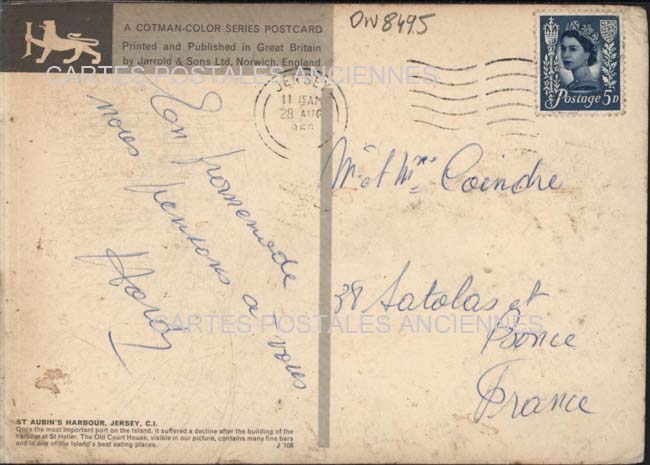 A COTMAN-COLOR SERIES POSTCARD
Printed and Published in Great Britain
by Jarrold & Sons Ltd, Norwich, England
DW8495
CARTES POSTALES ANCIENNES
JERSEY
11 15AM
28 AUG
Postage 5D
En promenade
nous pensons à vous
Mr et Mme Coindre
38 Satolas et
Bonce
France
CARTES POSTALES ANCIENNES
ST AUBIN'S HARBOUR, JERSEY, C.I.
Once the most important port on the Island, it suffered a decline after the building of the
harbour at St Helier. The Old Court House, visible in our picture, contains many fine bars
and is one of the Island's best eating places.
J 108